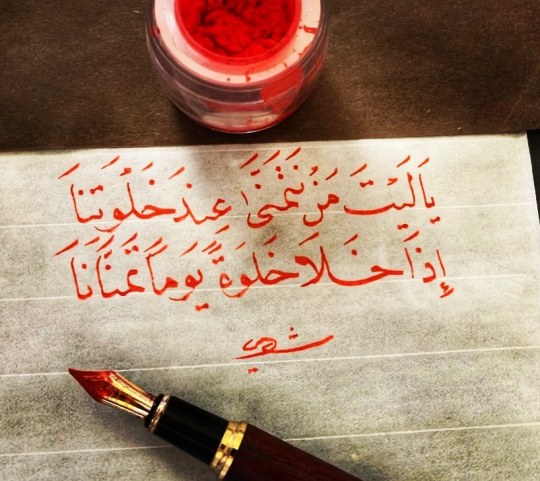 يَا لَيْتَ مَنْ نَتَمَنَّىٰ عِنْدَ خَلْوَتِنَا
إِذَا خَلَا خَلْوَةً يَوْمًا تَمَنَّانَا